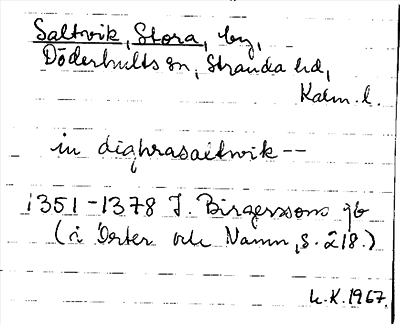 Saltvik, Stora, by,
Döderhults sn, Stranda hd,
Kalm. l.
in dighrasaltwik --
1351-1378 J. Birgerssons jb
(i Orter och Namn, s. 218.)
K.K. 1967.